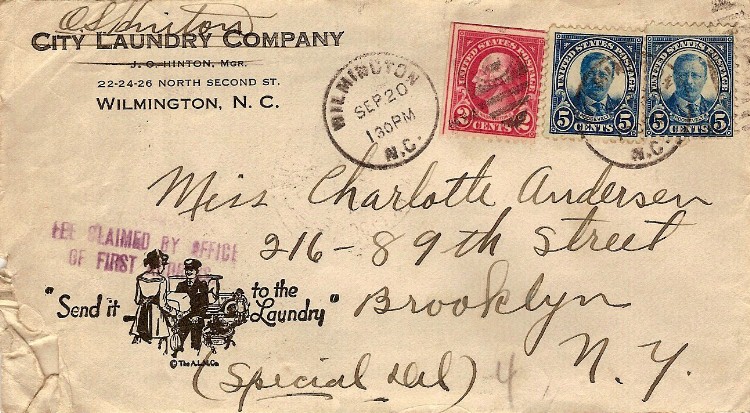 O S Hinton
CITY LAUNDRY COMPANY
J. O. HINTON, MGR.
22-24-26 NORTH SECOND ST.
WILMINGTON, N. C.
WILMINGTON
SEP 20
130PM
N.C.
UNITED STATES POSTAGE
2 CENTS 2
UNITED STATES POSTAGE
5 CENTS 5
UNITED STATES POSTAGE
5 CENTS 5
N.C.
Miss Charlotte Andersen
216-89th Street
Brooklyn
N. Y.
(Special del)
4
FEE CLAIMED BY OFFICE
OF FIRST ADDRESS
"Send it to the
Laundry"
© The A.L.M.Co